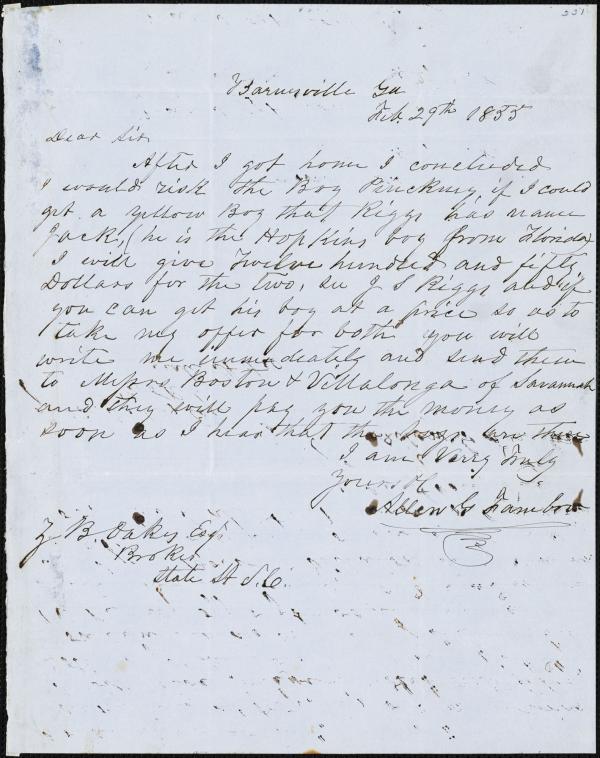 551
Barnesville Ga
Feb. 29th 1855
Dear Sir
After I got home I concluded
I would risk the Boy Pinckney if I could
get a yellow Boy that Riggs has name
Jack, (he is the Hopkins boy from Florida)
I will give Twelve hundred and fifty
Dollars for the two, see J S Riggs and if
you can get his boy at a price so as to
take my offer for both you will
write me immediately and send them
to Messrs Boston & Villalonga of Savannah
and they will pay you the money as
soon as I hear that the boys are there
I am Very Truly
Yours &c
Allen G
Z B Oakes Esq
Broker
State St S.C.